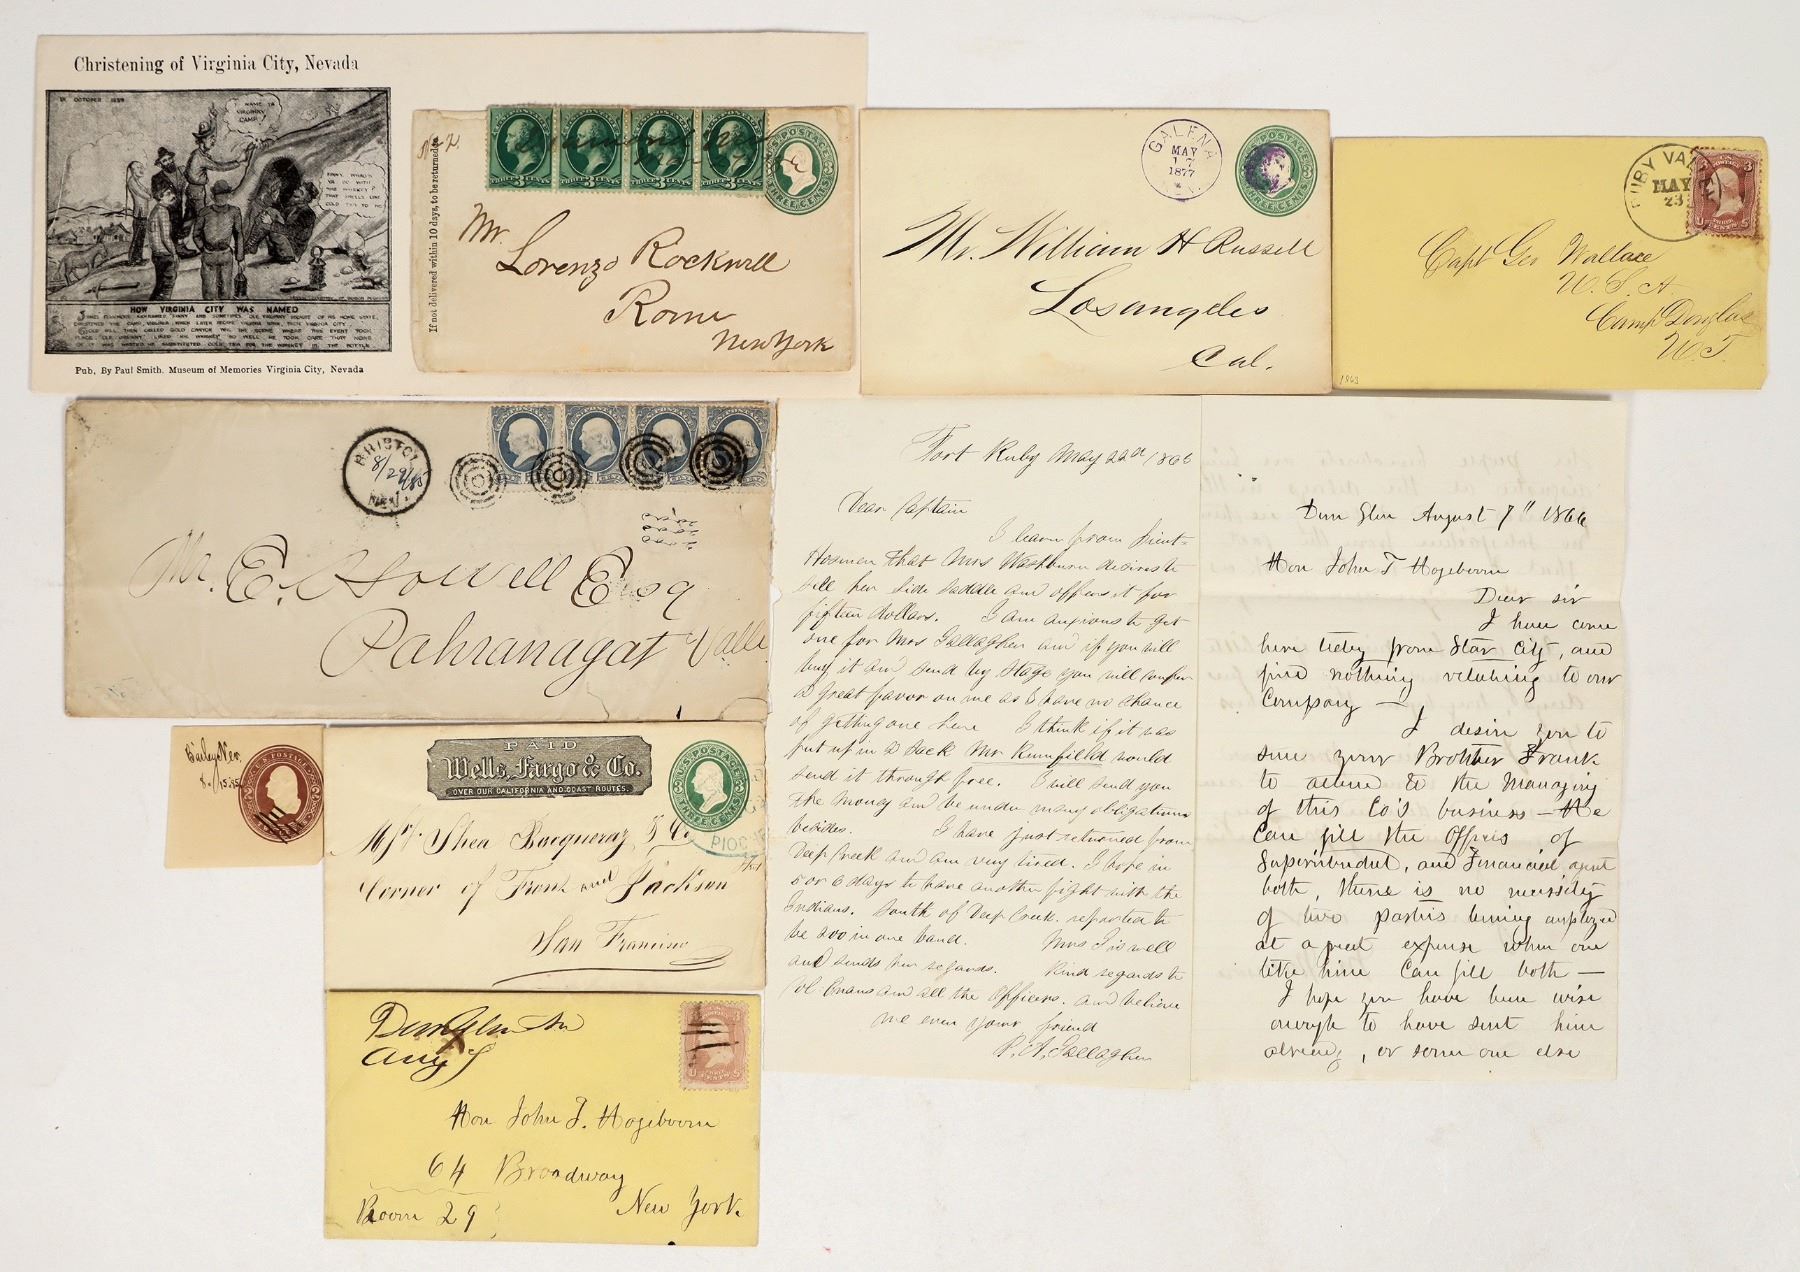 Christening of Virginia City, Nevada
IN OCTOBER 1859
I NAME YE
VIRGINNY
CAMP!
FINNY, WHAD'D
YE DO WITH
THE WHISKEY?
THAT SMELLS LIKE
COLD TEA TO ME
HOW VIRGINIA CITY WAS NAMED
Pub, By Paul Smith. Museum of Memories Virginia City, Nevada
If not delivered within 10 days, to be returned to
No 2.
THREE 3 CENTS THREE 3 CENTS THREE 3 CENTS THREE 3 CENTS
U.S. POSTAGE
THREE CENTS
Mr.
Lorenzo Rockwell
Rome
New York
GALENA
MAY
17
1877
NEV.
U.S. POSTAGE
THREE CENTS
Mr. William H Russell
Los angeles
Cal.
RUBY VAL
MAY
23
Capt Geo Wallace
U. S. A
Camp Douglas
U. T.
1863
BRISTOL
8/29/85
NEV.
Mr. E. Howell Esq
Pahranagat Valle
Bailey Nev.
8/15.85
U.S. POSTAGE
PAID
Wells, Fargo & Co.
OVER OUR CALIFORNIA AND COAST ROUTES.
U.S. POSTAGE
THREE CENTS
PIOCHE
Mssr. Shea Bocqueraz & Co
Corner of Front and Jackson Sts
San Francisco
Dun Glen
Aug 7
Hon John T. Hogeboom
64 Broadway
Room 29
New York.
Fort Ruby May 22nd / 866
Dear Captain
I learn from Lieut-
Hosmer that Mrs Washburn desires to
sell her Side Saddle and offers it for
fifteen dollars. I am anxious to get
one for Mrs Gallagher and if you will
buy it and send by Stage you will confer
a great favor on me as I have no chance
of getting one here I think if it was
put up in a Sack Mr. Rumfield would
send it through free. I will send you
the money and be under many obligations
besides. I have just returned from
Deep Creek and am very tired. I hope in
5 or 6 days to have another fight with the
Indians. South of Deep Creek. reported to
be 200 in one band. Mrs G is well
and sends her regards. Kind regards to
Col. Evans and all the Officers. and believe
me ever your friend
P. A. Gallagher
Dun Glen August 7th 1866
Hon John T Hogeboom
Dear sir
I have come
here today from Star City, and
find nothing relating to our
Company —
I desire you to
send your Brother Frank
to attend to the Managing
of this Co's business — He
can fill the Offices of
Superintendent, and Financial agent
both, there is no necessity
of two parties being employed
at a great expense when one
like him can fill both —
I hope you have been wise
enough to have sent him
already, or some one else